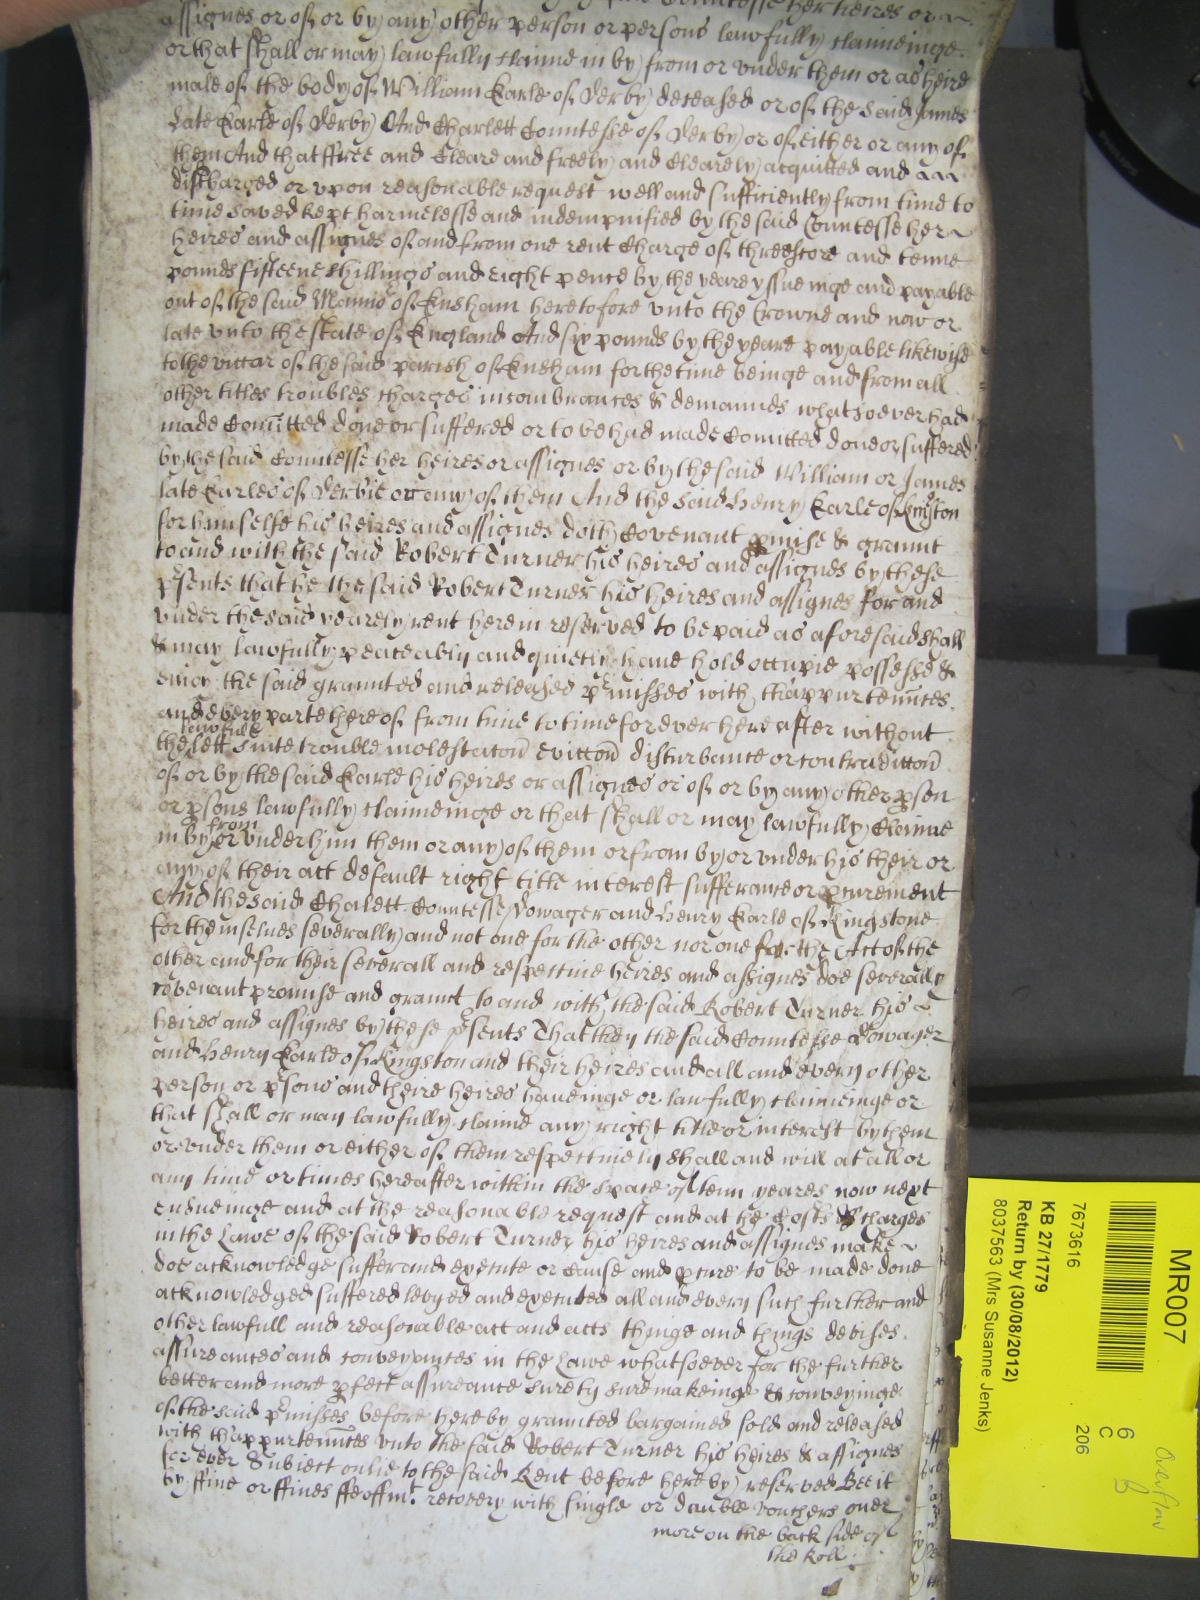 Countesse her heires or
assignes or of or by any other person or persons lawfully claimeinge
or that shall or may lawfully claime in by from or vnder them or as heire
male of the body of William Earle of Derby deceased or of the said James
Late Earle of Derby And Charlett Countesse of Derby or of either or any of
them And that ffree and Cleare and freely and Clearely acquitted and
discharged or vpon reasonable request well and sufficiently from time to
time saved kept harmelesse and indempnified by the said Countesse her
heires and assignes of and from one rent Charge of threescore and tenne
pounds fifteene shillings and eight pence by the yeare yssueinge and payable
out of the said Mannor of Ensham heretofore vnto the Crowne and now or
late vnto the State of England And six pounds by the yeare payable likewise
to the viccar of the said parish of Ensham for the time beinge and from all
other titles troubles charges incombrances & demannds whatsoever had
made Comitted done or suffered or to be had made Comitted done or suffered
by the said Countesse her heires or assignes or by the said William or James
late Earles of Derbie or any of them And the said Henry Earle of Kingston
for himselfe his heires and assignes doth Covenant pmise & graunt
to and with the said Robert Turner his heires and assignes by these
psents that he the said Robert Turner his heires and assignes for and
vnder the said yearely rent herein reserved to be paid as aforesaid shall
& may lawfully peaceably and quietly haue hold occupie possesse &
enioy the said graunted and released pmisses with thappurtennces
and every parte thereof from time to time for ever hereafter without
lawfull
the lett suite trouble molestacon eviccon disturbance or contradiccon
of or by the said Earle his heires or assignes or of or by any other pson
or psons lawfully claimeinge or that shall or may lawfully Claime
from
in by or vnder him them or any of them or from by or vnder his their or
any of their act default right title interest sufferance or pcurement
And the said Charlett Countesse Dowager and Henry Earle of Kingstone
for themselues severally and not one for the other nor one for the Act of the
other and for their severall and respectiue heires and assignes doe severally
covenant promise and graunt to and with the said Robert Turner his
heires and assignes by these psents That they the said Countesse Dowager
and Henry Earle of Kingston and their heires and all and every other
person or psons and theire heires haueinge or lawfully claimeinge or
that shall or may lawfully claime any right title or interest by them
or vnder them or either of them respectiuely shall and will at all or
any time or times hereafter within the space of tenn yeares now next
ensueinge and at the reasonable request and at the Costs & charges
in the Lawe of the said Robert Turner his heires and assignes make
doe acknowledge suffer and execute or Cause and pcure to be made done
acknowledged suffered levyed and executed all and every such further and
other lawfull and reasonable act and acts thinge and things devises
assurances and conveyances in the Lawe whatsoever for the further
better and more pfect assureance surety suremakeinge & conveyinge
of the said pmisses before hereby graunted bargained sold and released
with thappurtennces vnto the said Robert Turner his heires & assignes
for ever Subiect onlie to the said Rent before hereby reserved Bee it
by ffine or ffines ffeoffmt recovery with single or double vouchers over
more on the back side of
the Roll
MR007
7673616
6
C
206
KB 27/1779
Return by (30/08/2012)
8037563 (Mrs Susanne Jenks)